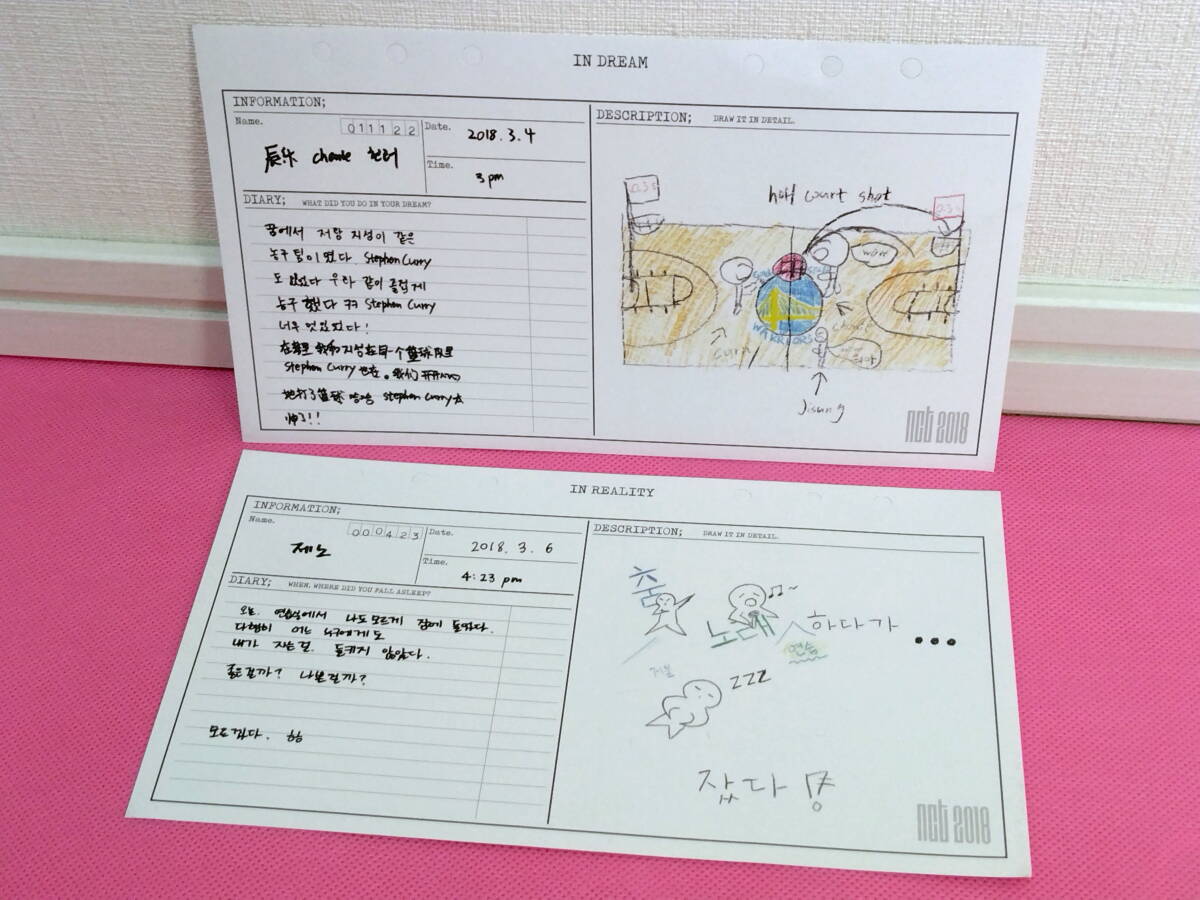 IN DREAM
INFORMATION;
Name.
011122
辰乐 chenle 천러
Date.
2018.3.4
Time.
3 pm
DIARY; WHAT DID YOU DO IN YOUR DREAM?
꿈에서 저랑 지성이 같은
농구 팀이 였다 Stephen Curry
도 있었다 우리 같이 즐겁게
농구 했다 ㅋㅋ Stephen Curry
너무 멋있었다!
在梦里 我和지성在同一个篮球队里
Stephen Curry也在。我们开开心心
地打了篮球 哈哈 Stephen Curry太
帅了!!
DESCRIPTION; DRAW IT IN DETAIL.
half court shot
0.3s
0.3s
wow
WARRIORS
curry
chenle
Jisung
nct 2018
IN REALITY
INFORMATION;
Name.
000423
제노
Date.
2018. 3. 6
Time.
4:23 pm
DIARY; WHEN, WHERE DID YOU FALL ASLEEP?
오늘. 연습실에서 나도 모르게 잠에 들었다.
다행히 어느 누구에게도
내가 자는걸. 들키지 않았다.
좋은걸까? 나쁜걸까?
모르겠다. 핳
DESCRIPTION; DRAW IT IN DETAIL.
춤
노래
연습
하다가
...
거울
zzz
잤다!
nct 2018